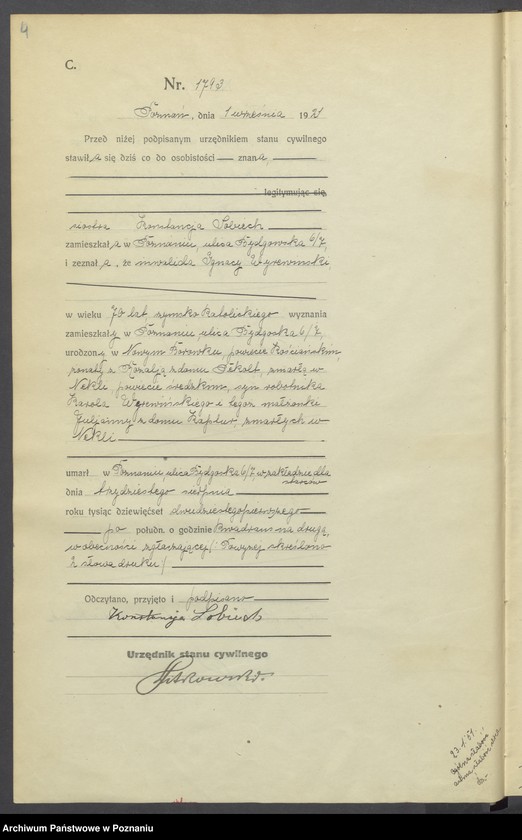 4
C.
Nr. 1793
Poznań, dnia 1 września 1921
Przed niżej podpisanym urzędnikiem stanu cywilnego
stawiła się dziś co do osobistości — znana,
legitymując się,
siostra Konstancja Sobiech
zamieszkała w Poznaniu, ulica Bydgowska 6/7,
i zeznała, że inwalida Ignacy Wyrewinski
w wieku 70 lat, rzymsko katolickiego wyznania
zamieszkały w Poznaniu ulica Bydgoska 6/7,
urodzony w Nowym Borówku, powiecie Kościańskim,
żonaty z Rozalją z domu Sekolt, zmarłą w
Nekli, powiecie średzkim, syn robotnika
Karola Wyrewińskiego i tegoż małżonki
Juljanny z domu Kapłur zmarłych w
Nekli
umarł w Poznaniu, ulica Bydgoska 6/7, w zakładzie dla
starców
dnia trzydziestego sierpnia
roku tysiąc dziewięćset dwudziestegopierwszego
po połudn. o godzinie kwadrans na drugą,
w obecności zgłaszającej /: Powyżej skreślono
2 słowa druku /
Odczytano, przyjęto i podpisano
Konstancja Sobiech
Urzędnik stanu cywilnego
23.1.51
Archiwum Państwowe w Poznaniu
Archiwum Państwowe w Poznaniu